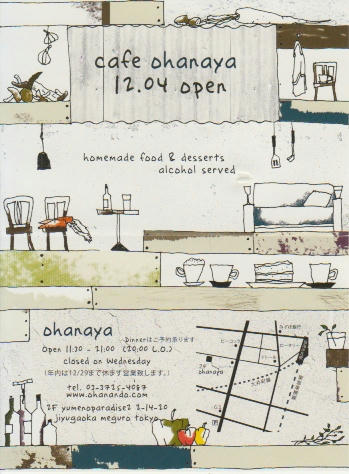 cafe ohanaya
12.04 open
homemade food & desserts
alcohol served
ohanaya
Dinnerはご予約承ります
open 11:30 - 21:00 (20:00 L.O.)
closed on Wednesday
(年内は12/29まで休まず営業致します。)
tel. 03-3725-4087
www.ohanando.com
2F yumenoparadise2 2-14-20
jiyugaoka meguro tokyo
みずほ銀行
ピーコック
2F
ohanaya